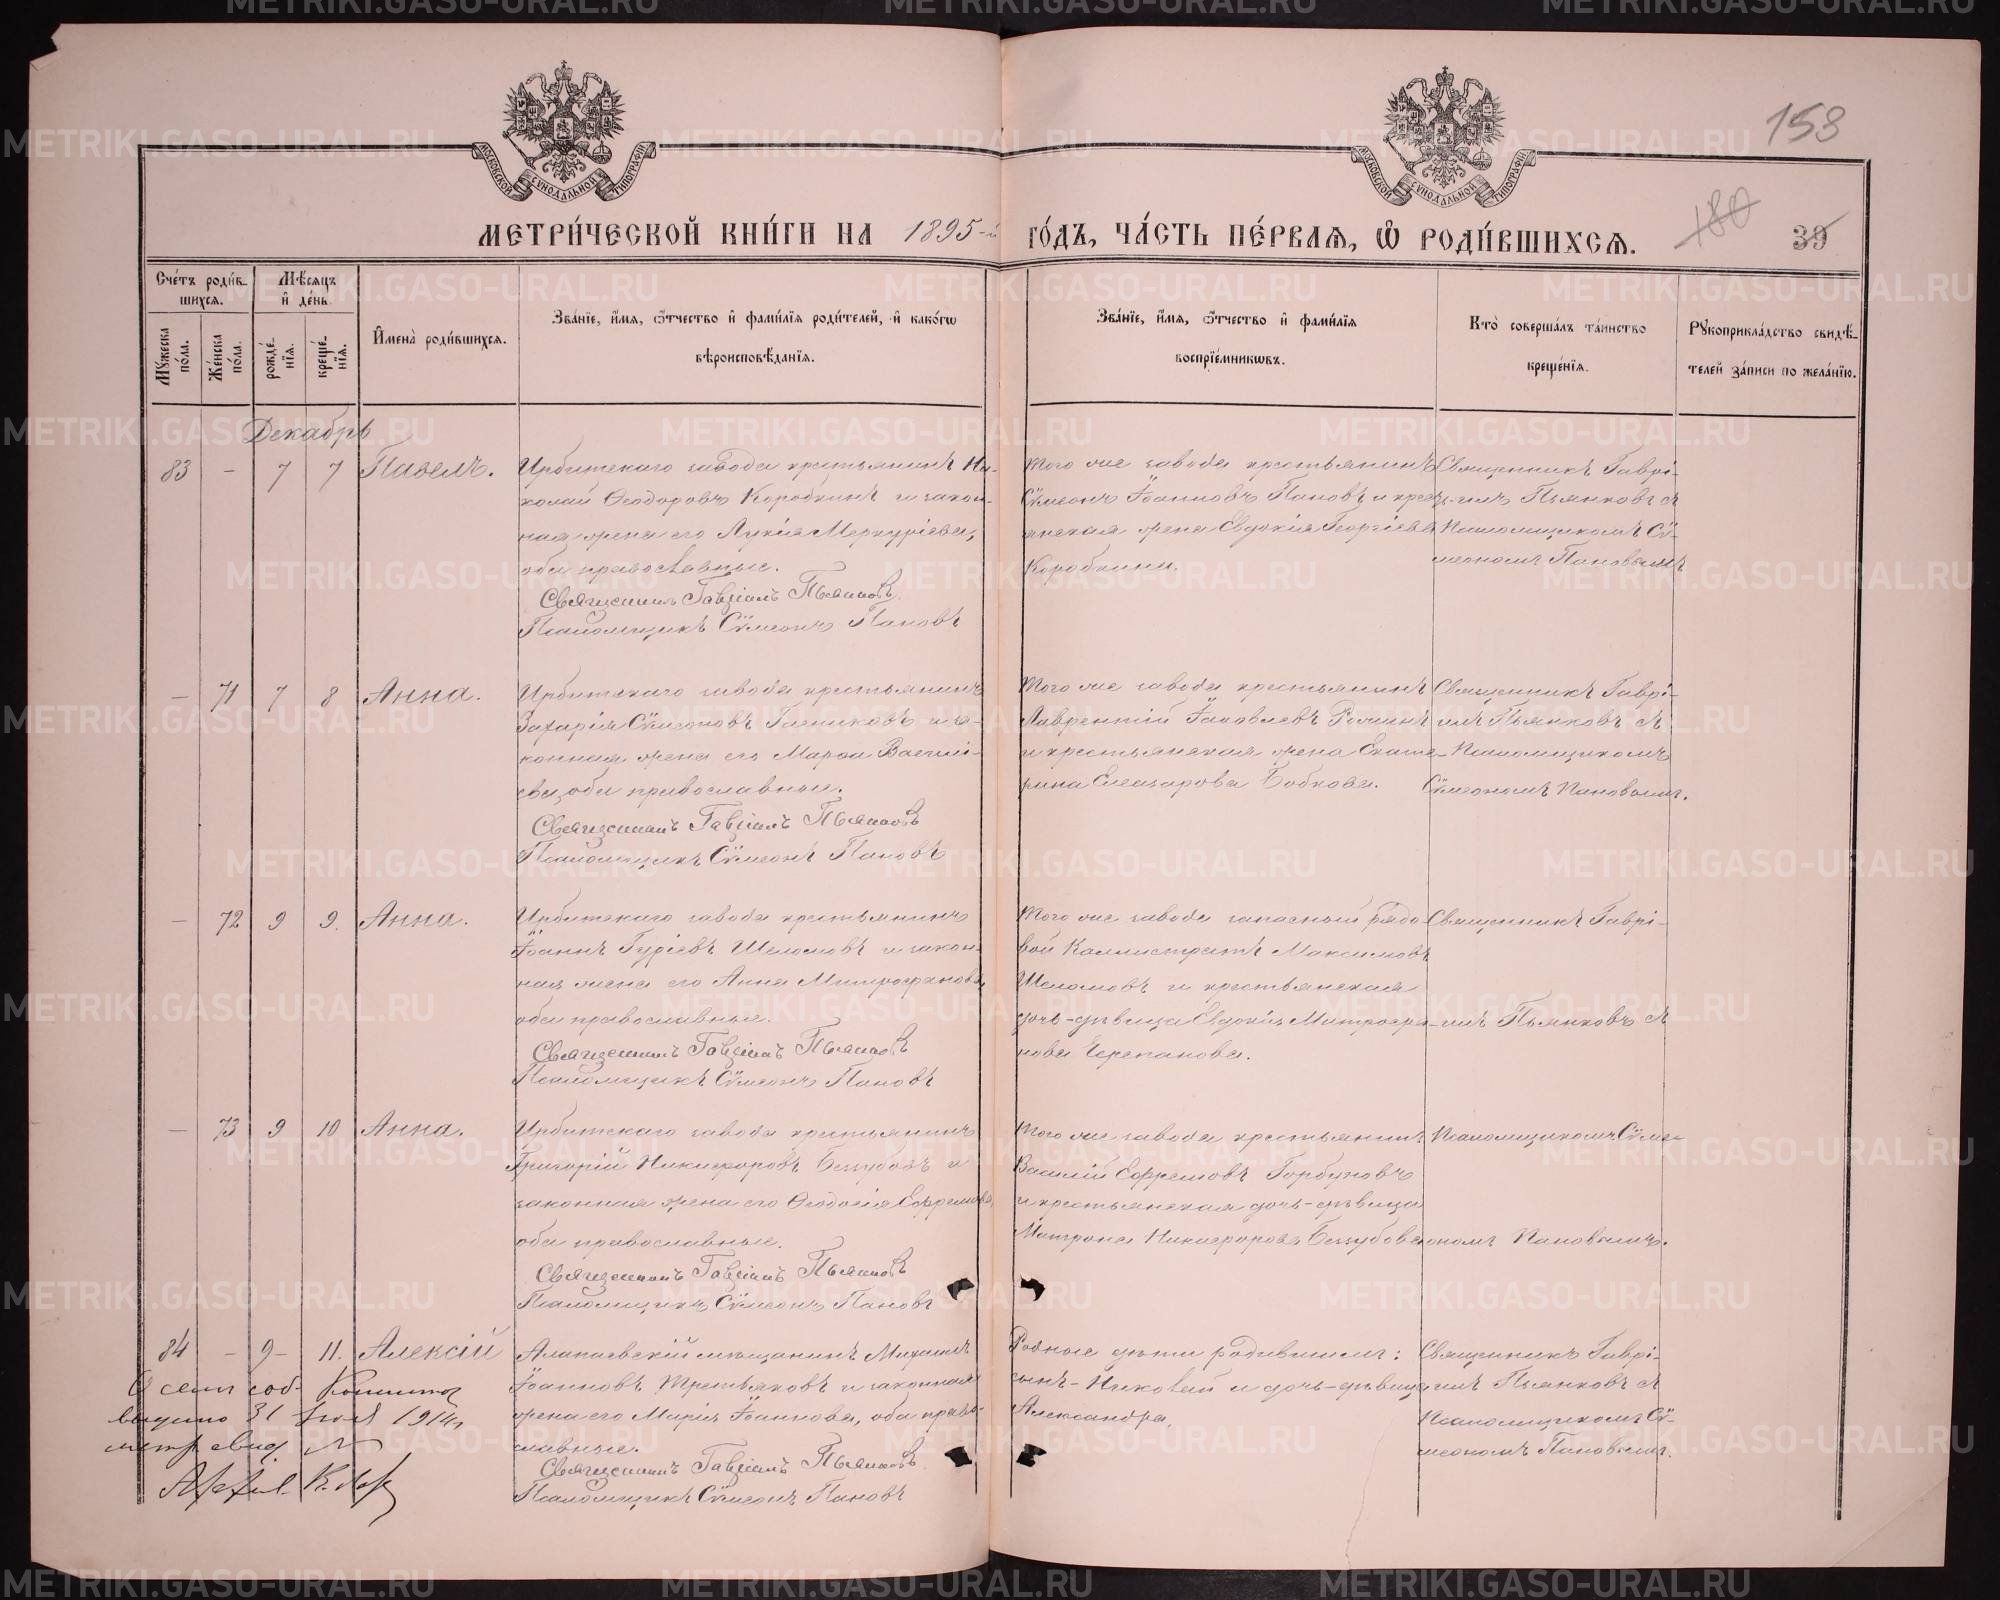 158
180
39
МОСКОВСКОЙ СѴНОДАЛЬНОЙ ТИПОГРАФІИ
МОСКОВСКОЙ СѴНОДАЛЬНОЙ ТИПОГРАФІИ
МЕТРИ́ЧЕСКОЙ КНИ́ГИ НА 1895-й ГО́ДЪ, ЧА́СТЬ ПЕ́РВАѦ, Ѡ РОДИ́ВШИХСѦ.
Сче́тъ роди́в-шихсѧ.
Мꙋ́жеска по́ла.
Же́нска по́ла.
Мѣ́сѧцъ и де́нь.
рожде́-нїѧ.
креще́-нїѧ.
Имена̀ роди́вшихсѧ.
Зва́нїе, и́мѧ, ѻ҆́тчество и фами́лїѧ роди́телей, и како́гѡ
вѣроисповѣ́данїѧ.
Зва́нїе, и́мѧ, ѻ҆́тчество и фами́лїѧ
воспрїе́мникѡвъ.
Кто̀ соверша́лъ та́инство
креще́нїѧ.
Рꙋкоприкла́дство свидѣ́-
телей за́писи по жела́нїю.
Декабрь
83 - 7 7 Павелъ.
Ирбитскаго завода крестьянинъ Ни-
колай Ѳеодоровъ Коробкинъ и закон-
ная жена его Лукія Меркуріева,
оба православные.
Священникъ Гавріилъ Пьянковъ
Псаломщикъ Сѵмеонъ Пановъ
Того же завода крестьянинъ
Сѵмеонъ Іоанновъ Пановъ и кресть-
янская жена Евдокія Георгіева
Коробкина.
Священникъ Гаврі-
илъ Пьянковъ съ
Псаломщикомъ Сѵ-
меономъ Пановымъ
— 71 7 8 Анна.
Ирбитскаго завода крестьянинъ
Захарія Сѵмеоновъ и за-
конная жена его Марѳа Василі-
ева, оба православные.
Священникъ Гавріилъ Пьянковъ
Псаломщикъ Сѵмеонъ Пановъ
Того же завода крестьянинъ
Лаврентій Іаковлевъ
и крестьянская жена Екате-
рина Елеазарова Бобкова.
Священникъ Гаврі-
илъ Пьянковъ съ
Псаломщикомъ
Сѵмеономъ Пановымъ.
— 72 9 9. Анна.
Ирбитскаго завода крестьянинъ
Іоаннъ Гуріевъ Шеломовъ и закон-
ная жена его Анна Митрофанова,
оба православные.
Священникъ Гавріилъ Пьянковъ
Псаломщикъ Сѵмеонъ Пановъ
Того же завода запасный рядо-
вой Каллистратъ Максимовъ
Шеломовъ и крестьянская
дочь-дѣвица Евдокія Митрофа-
нова Черепанова.
Священникъ Гаврі-
илъ Пьянковъ съ
— 73 9 10 Анна.
Ирбитскаго завода крестьянинъ
Григорій Никифоровъ Беззубовъ и
законная жена его Ѳеодосія Ефремова,
оба православные.
Священникъ Гавріилъ Пьянковъ
Псаломщикъ Сѵмеонъ Пановъ
Того же завода крестьянинъ
Василій Ефремовъ Горбуновъ
и крестьянская дочь-дѣвица
Матрона Никифорова Беззубова
Псаломщикомъ Сѵме-
ономъ Пановымъ.
84 - 9 - 11. Алексій
Алапаевскій мѣщанинъ Михаилъ
Іоанновъ Третьяковъ и законная
жена его Марія Іоаннова, оба право-
славные.
Священникъ Гавріилъ Пьянковъ
Псаломщикъ Сѵмеонъ Пановъ
Родные дѣти родившихъ:
сынъ-Николай и дочь-дѣвица
Александра.
Священникъ Гаврі-
илъ Пьянковъ съ
Псаломщикомъ Сѵ-
меономъ Пановымъ.
О семъ
выдано 31 1914 г.
метр свид №
METRIKI.GASO-URAL.RU